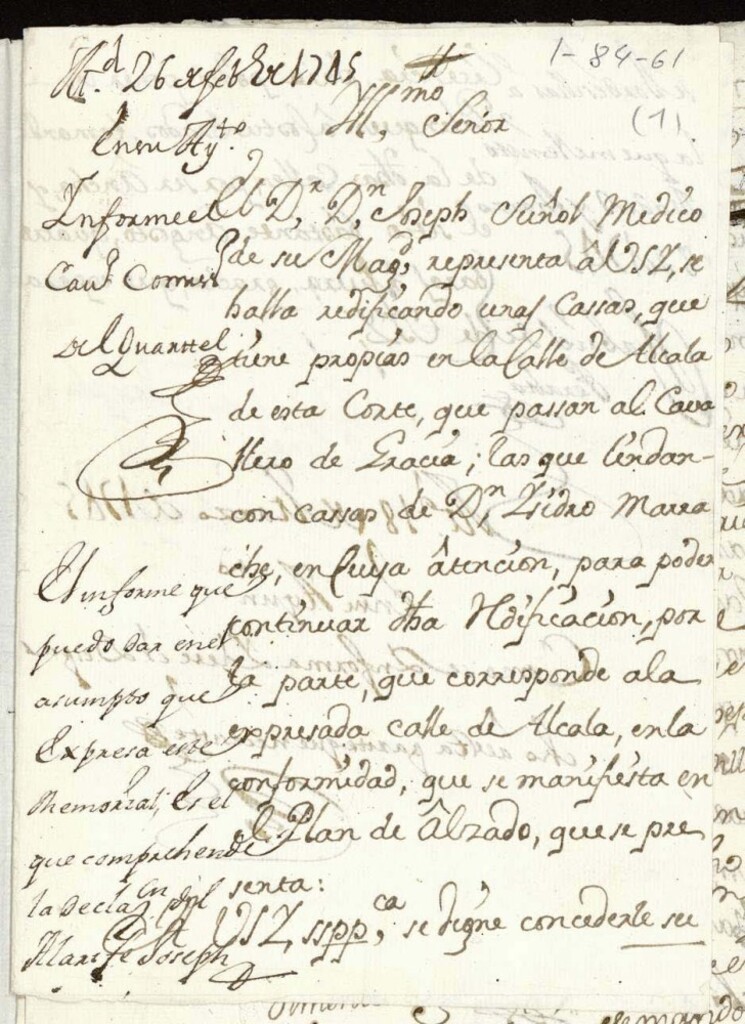 1-84-61
(1)
M.d 26 de feb.ro de 1745
En su Ay.to
Informe el
Cav.o Comis.
del Quarttel
Yll.mo Señor
El D.r D.n Joseph Suñol Medico
de su Mag.d, representa â USY, se
halla redificando unas Cassas, que
tiene propias en la Calle de Alcala
de esta Corte, que passan al Cava
llero de Gracia; las que lindan-
con cassas de D.n Ysidro Marra
che, en Cuya âtencion, para poder
continuar dha Redificacion, por
la parte, que corresponde a la
expresada calle de Alcala, en la
conformidad, que se manifiesta en
el Plan de Âlzado, que se pre
senta:
A USY, sspp.ca se digne concederle su
El informe que
puedo dar en el
asumpto que
Expresa este
Memorial, Es el
que comprehende
la Declaz.on del
Alarife Joseph